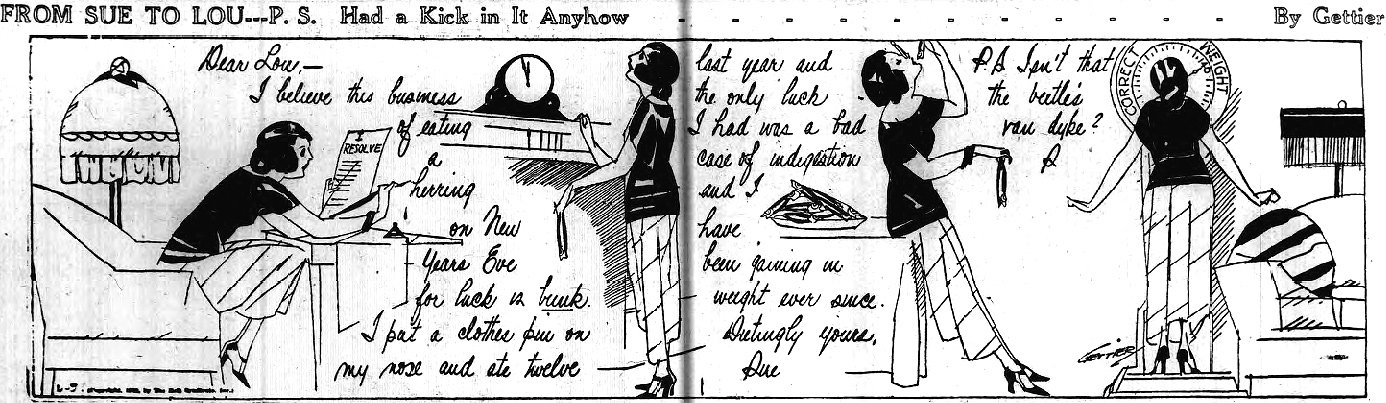 FROM SUE TO LOU---P. S. Had a Kick in It Anyhow - - - - - - - - - - - - - - - By Gettier
Dear Lou,—
I believe this business
of eating
a
herring
on New
Years Eve
for luck is bunk.
I put a clothes pin on
my nose and ate twelve
I
RESOLVE
last year and
the only luck
I had was a bad
case of indigestion
and I
have
been gaining in
weight ever since.
Dietingly yours,
Sue
P.S. Isn't that
the beetle's
van dyke?
S
CORRECT WEIGHT
GETTIER